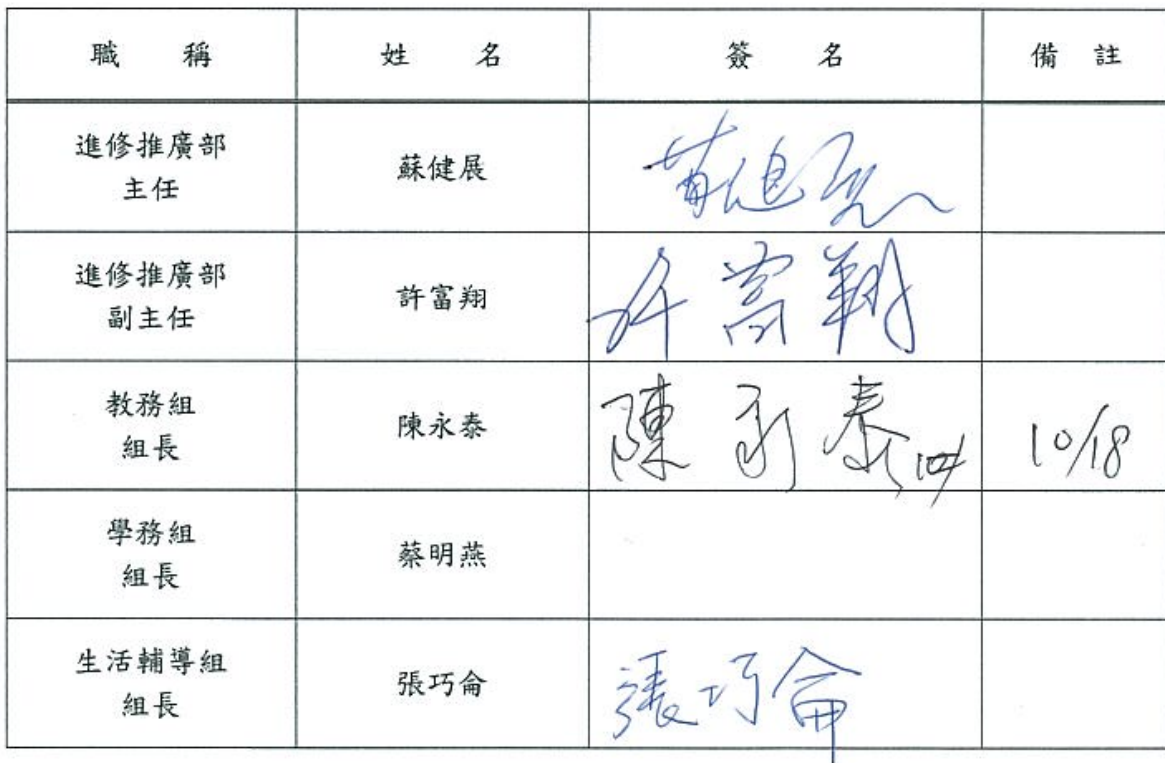 職稱 姓名 簽名 備註
進修推廣部
主任
蘇健展
進修推廣部
副主任
許富翔 許富翔
教務組
組長
陳永泰 陳永泰 10/18
學務組
組長
蔡明燕
生活輔導組
組長
張巧侖 張巧侖